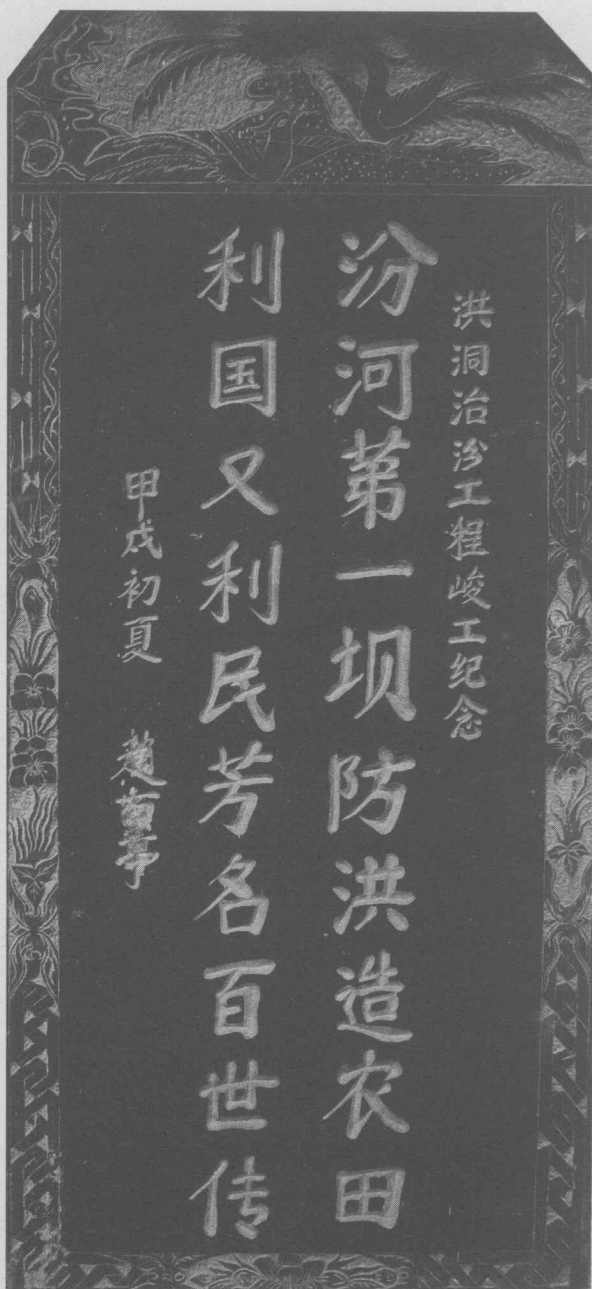 洪洞治汾工程峻工纪念
汾河第一坝防洪造农田
利国又利民芳名百世传
甲戌初夏